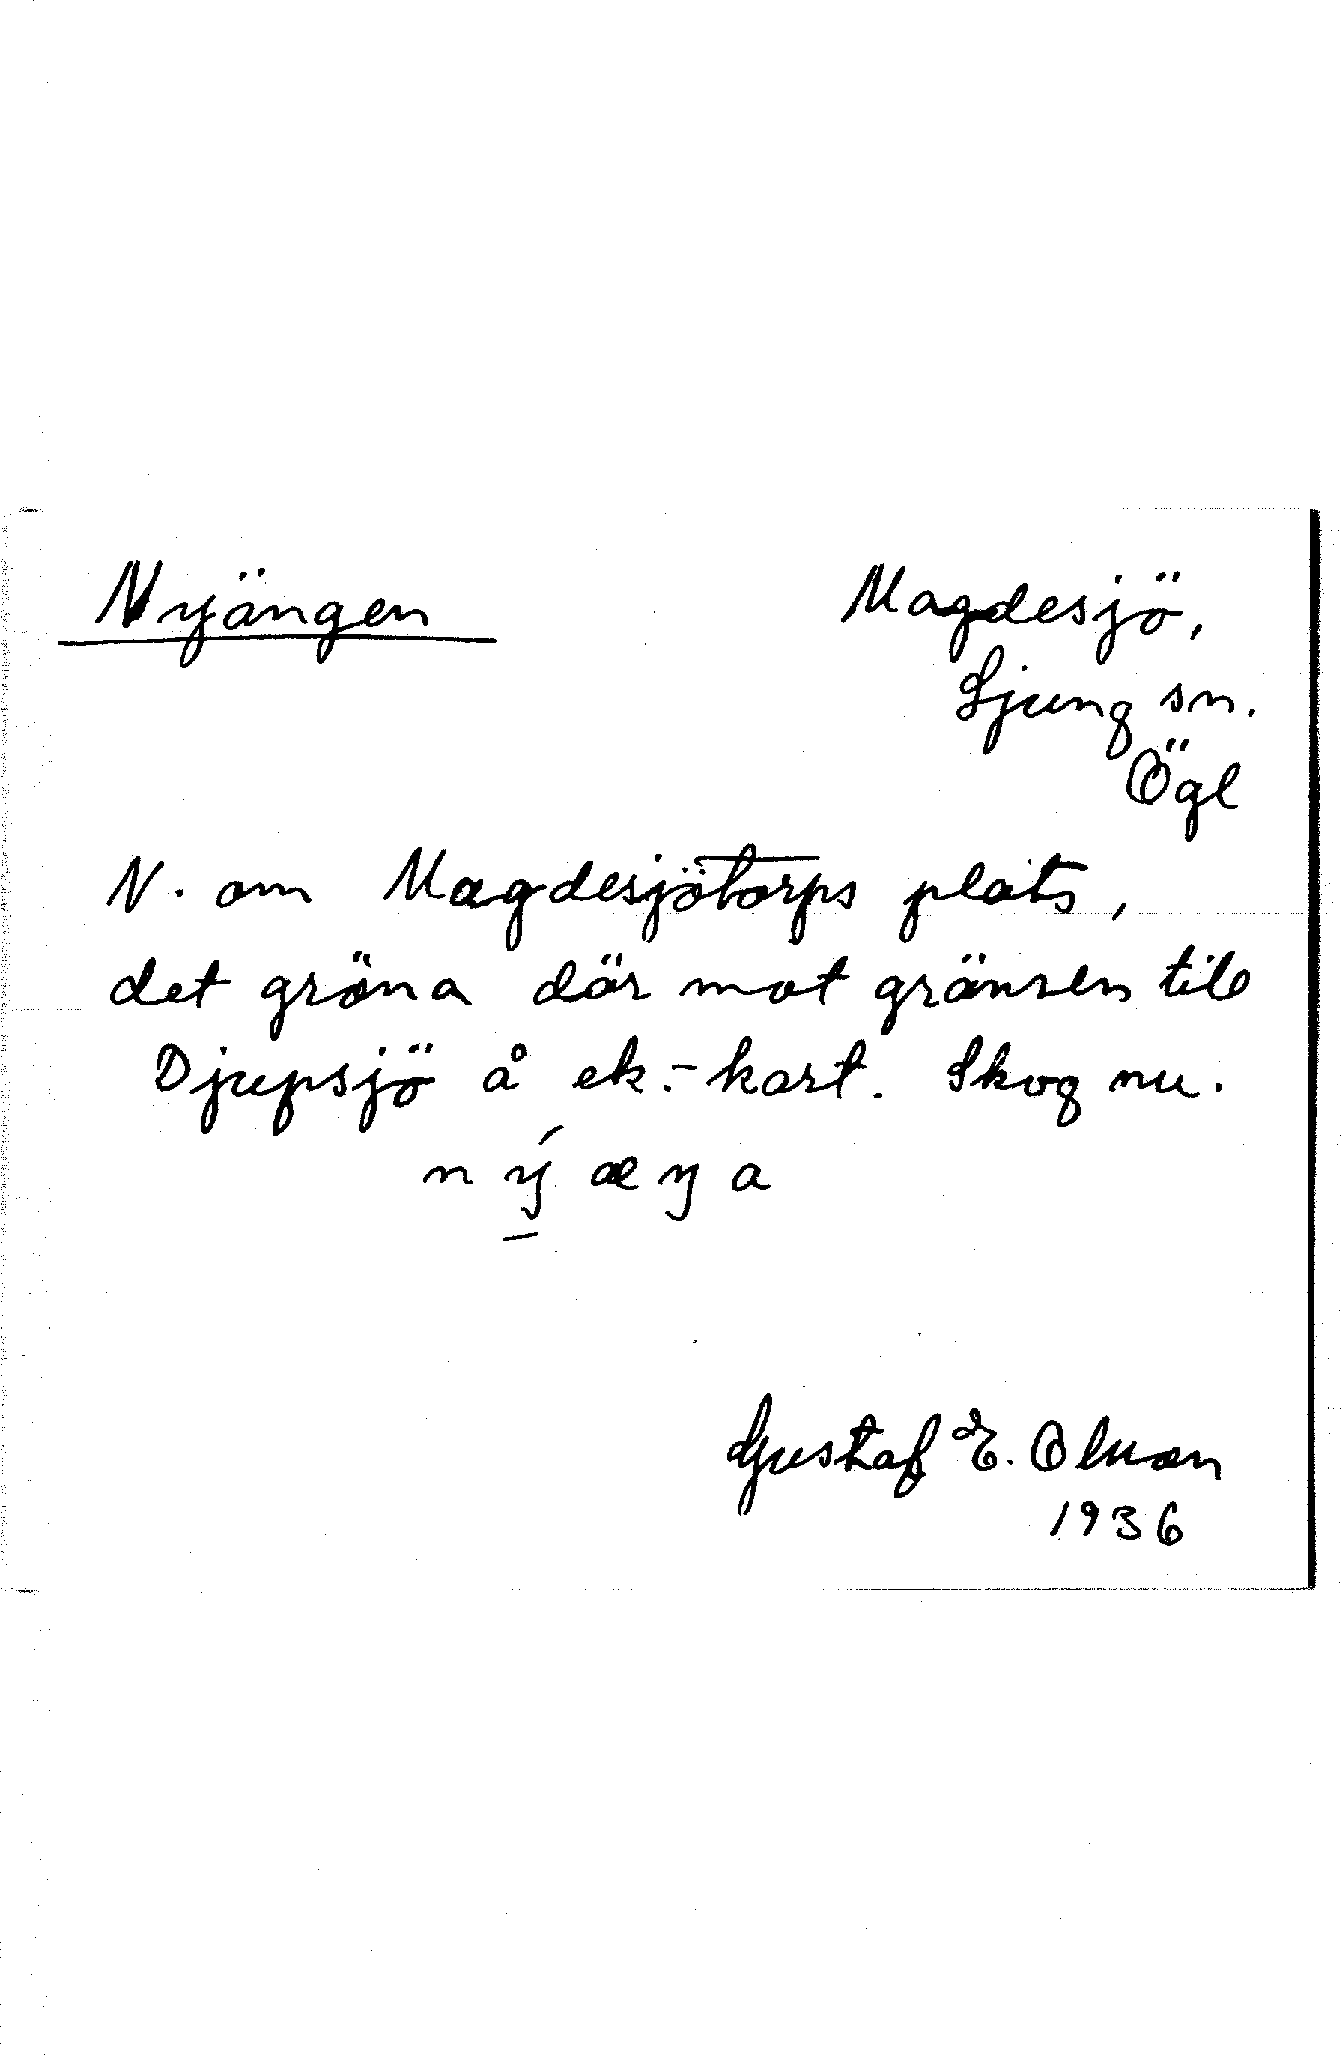 Nyängen
Magdesjö,
Ljung sn.
Ögl
N. om Magdesjötorps plats,
det gröna där mot gränsen till
Djupsjö å ek.-kart. Skog nu.
n ý̠ æ ŋ a
Gustaf E. Olsson
1936